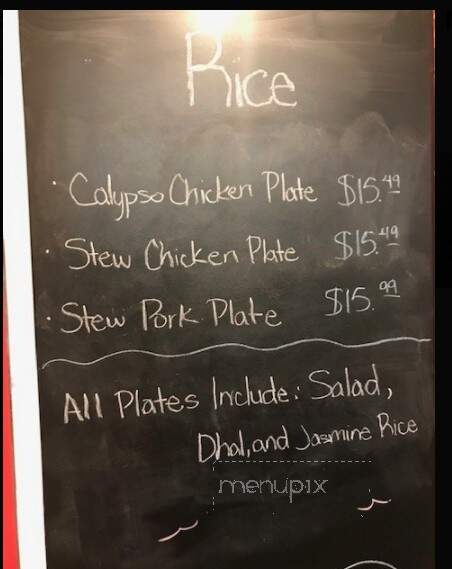 Rice
· Calypso Chicken Plate $15.49
· Stew Chicken Plate $15.49
· Stew Pork Plate $15.99
All Plates Include: Salad,
Dhal, and Jasmine Rice
menupix